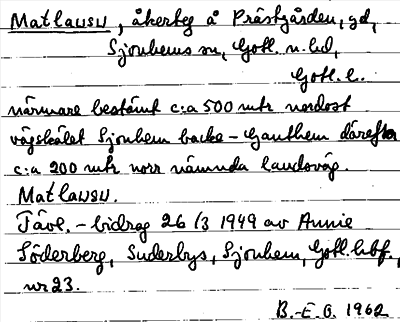 Matlausu, åkerteg å Prästgården, gd,
Sjonhems sn, Gotl. n. hd,
Gotl. l.
närmare bestämt c:a 500 mtr nordost
vägskälet Sjonhem backe - Ganthem därefter
c:a 200 mtr norr nämnda landsväg.
Matlausu.
Tävl. - bidrag 26/3 1949 av Annie
Söderberg, Suderbys, Sjonhem, Gotl. hbf.,
nr 23.
B.-E. O. 1962